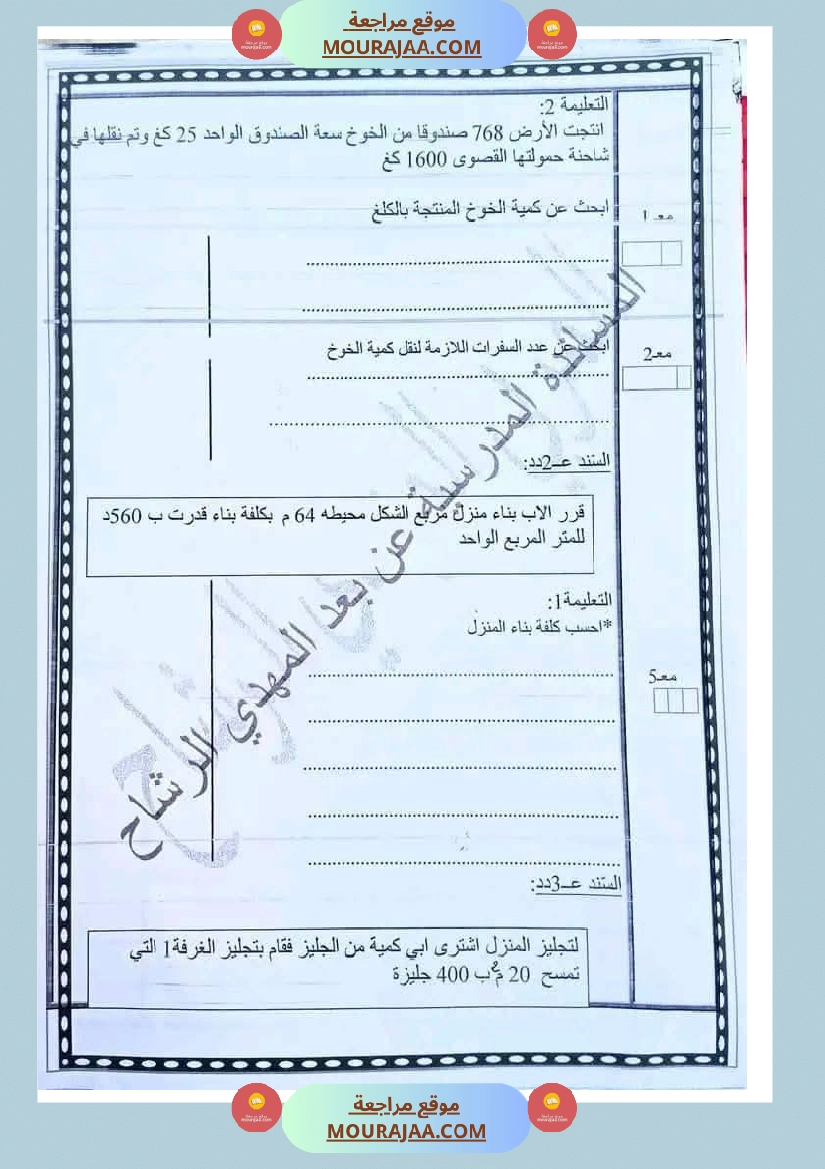 موقع مراجعة
MOURAJAA.COM
التعليمة 2:
انتجت الأرض 768 صندوقا من الخوخ سعة الصندوق الواحد 25 كغ وتم نقلها في
شاحنة حمولتها القصوى 1600 كغ
ابحث عن كمية الخوخ المنتجة بالكلغ
معـ 1
ابحث عن عدد السفرات اللازمة لنقل كمية الخوخ
معـ2
السند عــ2دد:
قرر الاب بناء منزل مربع الشكل محيطه 64 م بكلفة بناء قدرت ب 560د
للمتر المربع الواحد
التعليمة1:
*احسب كلفة بناء المنزل
معـ5
السند عــ3دد:
لتجليز المنزل اشترى ابي كمية من الجليز فقام بتجليز الغرفة1 التي
تمسح 20 م² ب 400 جليزة
المساندة المدرسية عن بعد المهدي الرشاح
موقع مراجعة
MOURAJAA.COM